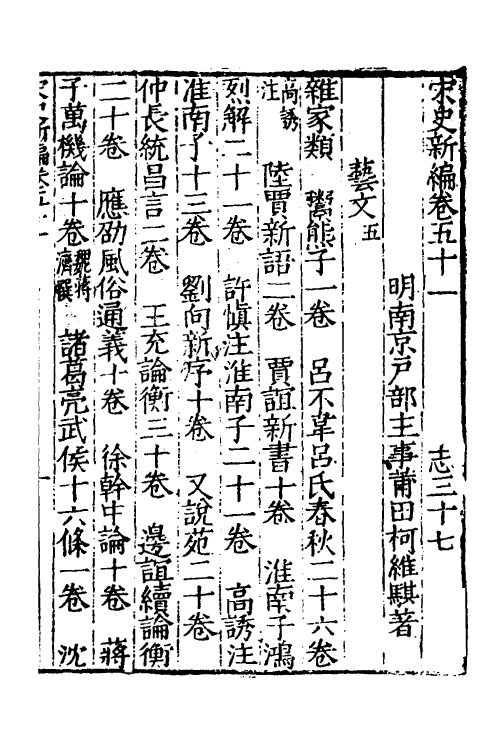 宋史新編卷五十一　志三十七
明南京戶部主事莆田柯維騏著
藝文五
雜家類　鬻熊子一卷　呂不韋呂氏春秋二十六卷
高誘注　陸賈新語二卷　賈誼新書十卷　淮南子鴻
烈解二十一卷　許慎注淮南子二十一卷　高誘注
淮南子十三卷　劉向新序十卷　又說苑二十卷
仲長統昌言二卷　王充論衡三十卷　邊誼續論衡
二十卷　應劭風俗通義十卷　徐幹中論十卷　蔣
子萬機論十卷魏蔣濟撰　諸葛亮武侯十六條一卷　沈